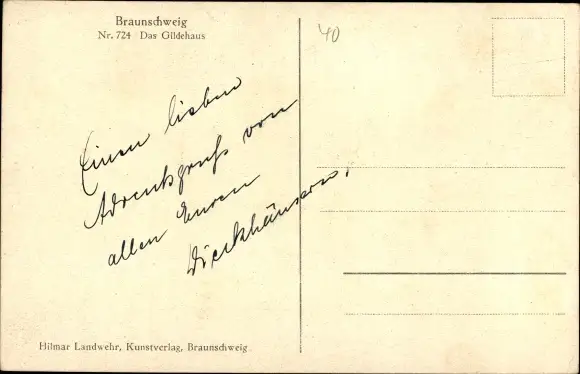 Braunschweig
Nr. 724 Das Gildehaus
40
Einen lieben
Adventsgruß von
allen Euren
Dierkhäusern.
Hilmar Landwehr, Kunstverlag, Braunschweig